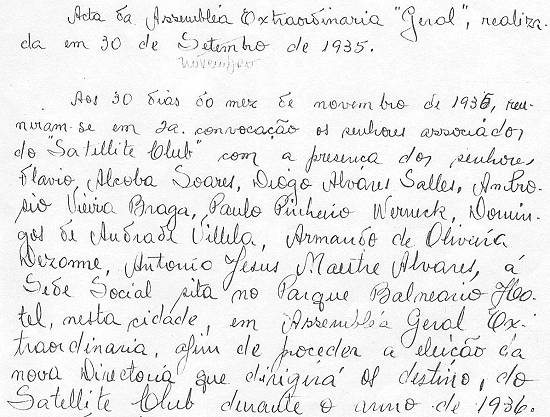 Acta da Assembléa Extraordinaria "Geral", realiza-
da em 30 de Setembro de 1935.
novembro
Aos 30 dias do mez de novembro de 1935, reu-
niram-se em 2a. convocação os senhores associados
do "Satellite Club" com a presença dos senhores
Flavio Alcoba Soares, Diogo Alvares Salles, Ambro-
sio Vieira Braga, Paulo Pinheiro Werneck, Domin-
gos de Andrade Villela, Armando de Oliveira
Dezonne, Antonio Jesus Maestre Alvares, á
Sede Social sita no Parque Balneario Ho-
tel, nesta cidade, em Assembléa Geral Ex-
traordinaria, afim de proceder a eleição da
nova Directoria que dirigirá os destino, do
Satellite Club durante o anno de 1936.